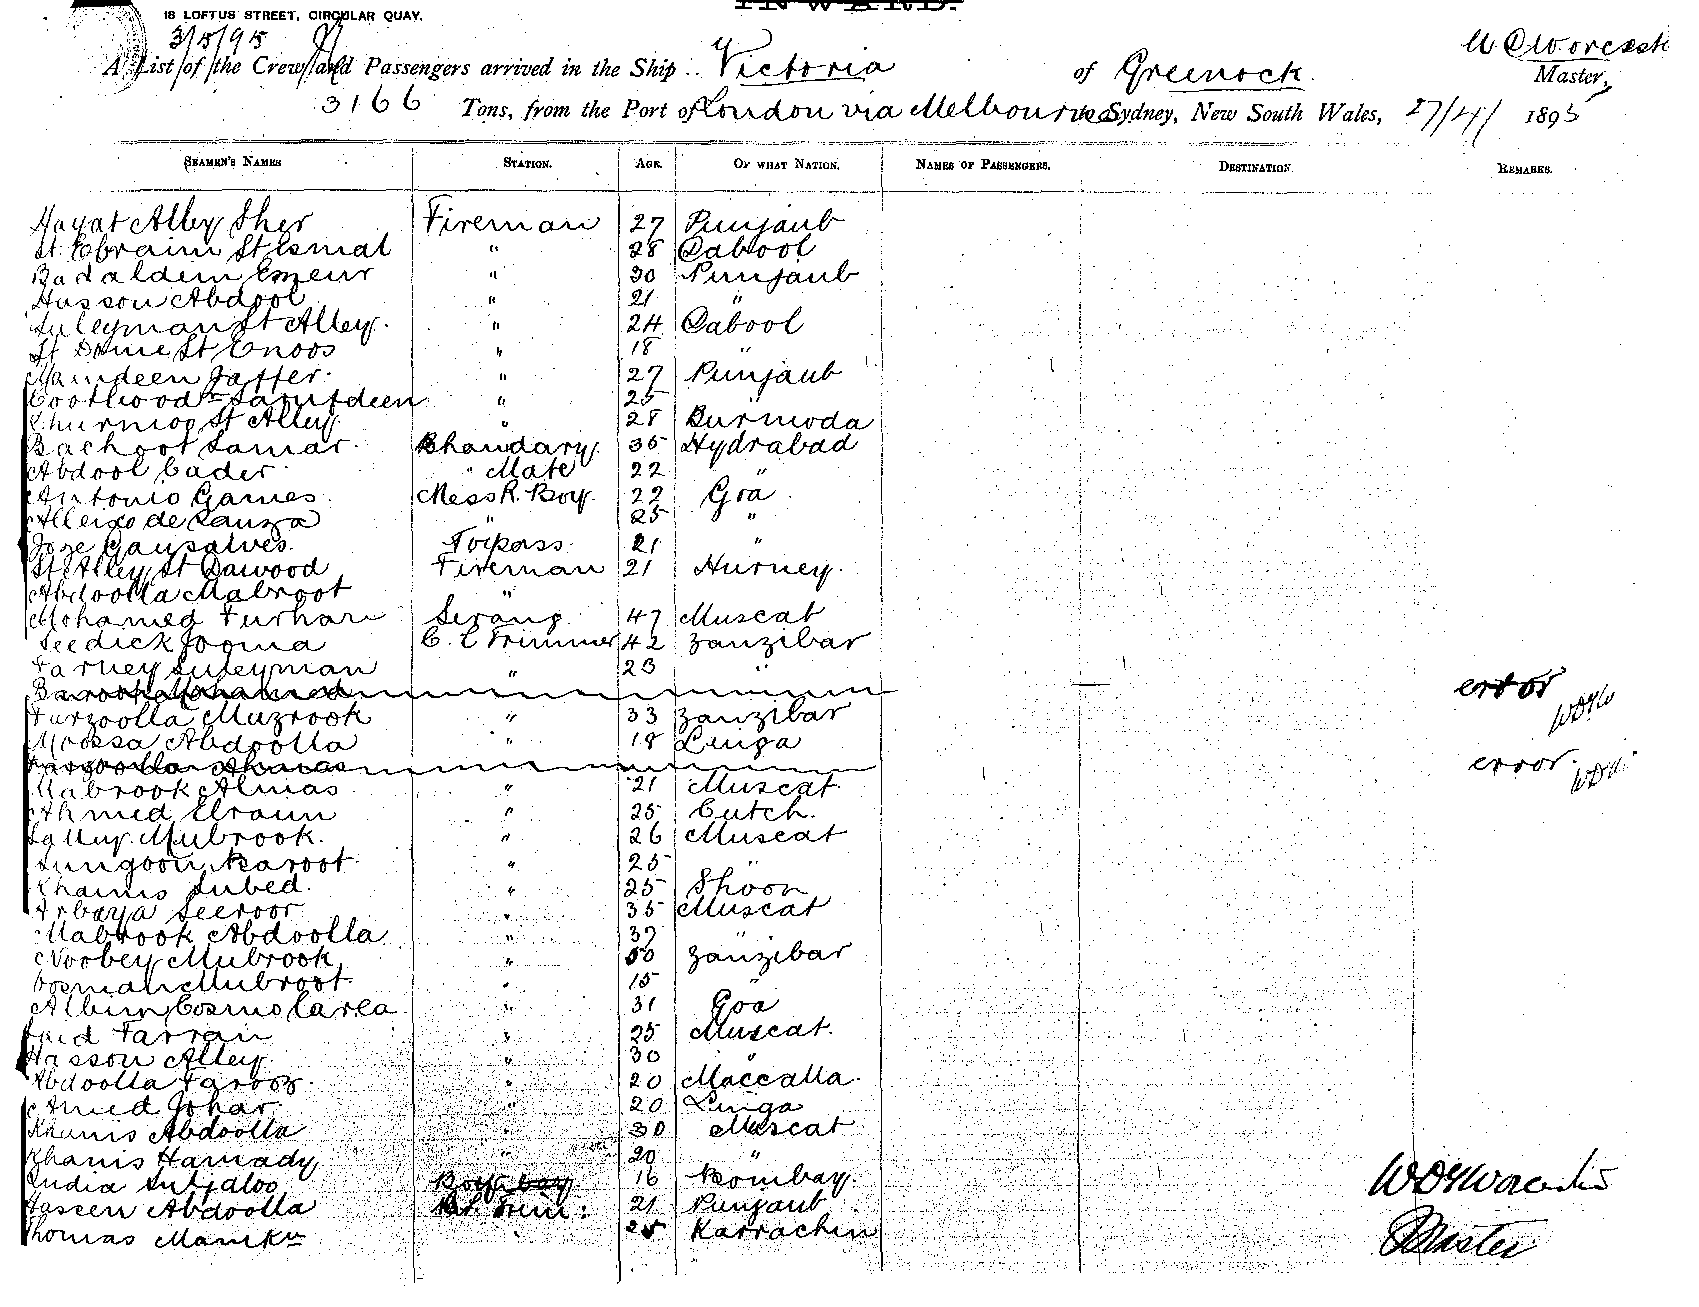 INWARD.
18 LOFTUS STREET, CIRCULAR QUAY.
3/5/95
A List of the Crew and Passengers arrived in the Ship Victoria of Greenock Master,
3166 Tons, from the Port of London via Melbourne to Sydney, New South Wales, 27/4/ 1895
SEAMEN'S NAMES STATION. AGE. OF WHAT NATION. NAMES OF PASSENGERS. DESTINATION. REMARKS.
Hayat Alley Sher Fireman 27 Punjaub
St. Ebraim St Esmal " 28 Cabool
Badaldein Emeur " 30 Punjaub
Husson Abdool " 21 "
Suleyman St Alley " 24 Cabool
St Dome St Enoos " 18
Jaffer " 27 Punjaub
" 25
St Alley " 28 Burmoda
Bachoot Samar Bhandary 35 Hydrabad
Abdool Cader " Mate 22 "
Antonio Games Mess R. Boy 22 Goa
Alleixo de Sauza " 25 "
Joze Gansalves Topass 21 "
St Alley St Dawood Fireman 21 Hurney
Abdoolla Mabroot "
Mohamed Furhan Serang 47 Muscat
Seedick Jooma C. C Trimmer 42 Zanzibar
Farney Suleyman " 23 "
Barook Mohamed error
Farzoolla Muzrook " 33 Zanzibar
Moossa Abdoolla " 18 Linga
Farzoolla Almas error
Mabrook Almas " 21 Muscat
Ahmed " 25 Cutch
Mubrook " 26 Muscat
Sungoor Karoot " 25 "
Khamis Subed " 25 Shoon
Arbaya Seeroor " 35 Muscat
Mabrook Abdoolla " 37
Noobey Mubrook " 50 Zanzibar
Mubroot " 15 "
Albino Cosmo Carea " 31 Goa
Farran " 25 Muscat
Hasson Alley " 30 "
Abdoolla Farooz " 20 Maccalla
Amed Johar " 20 Linga
Khamis Abdoolla " 30 Muscat
Khanis Hamady 20 "
16 Bombay
Hassen Abdoolla 21 Punjaub
Thomas 25 Karrachin
Master